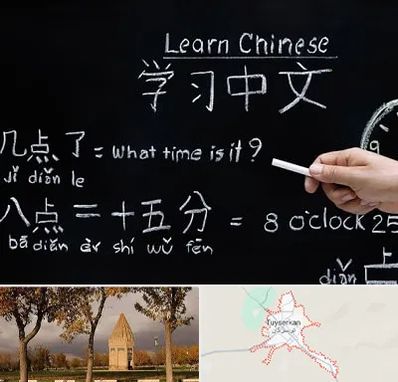 Learn Chinese
学习中文
几点了 = What time is it?
jǐ diǎn le
9
八点二十五分 = 8 o'clock 25
bā diǎn èr shí wǔ fēn
上
diǎn
Tuyserkan
تویسرکان